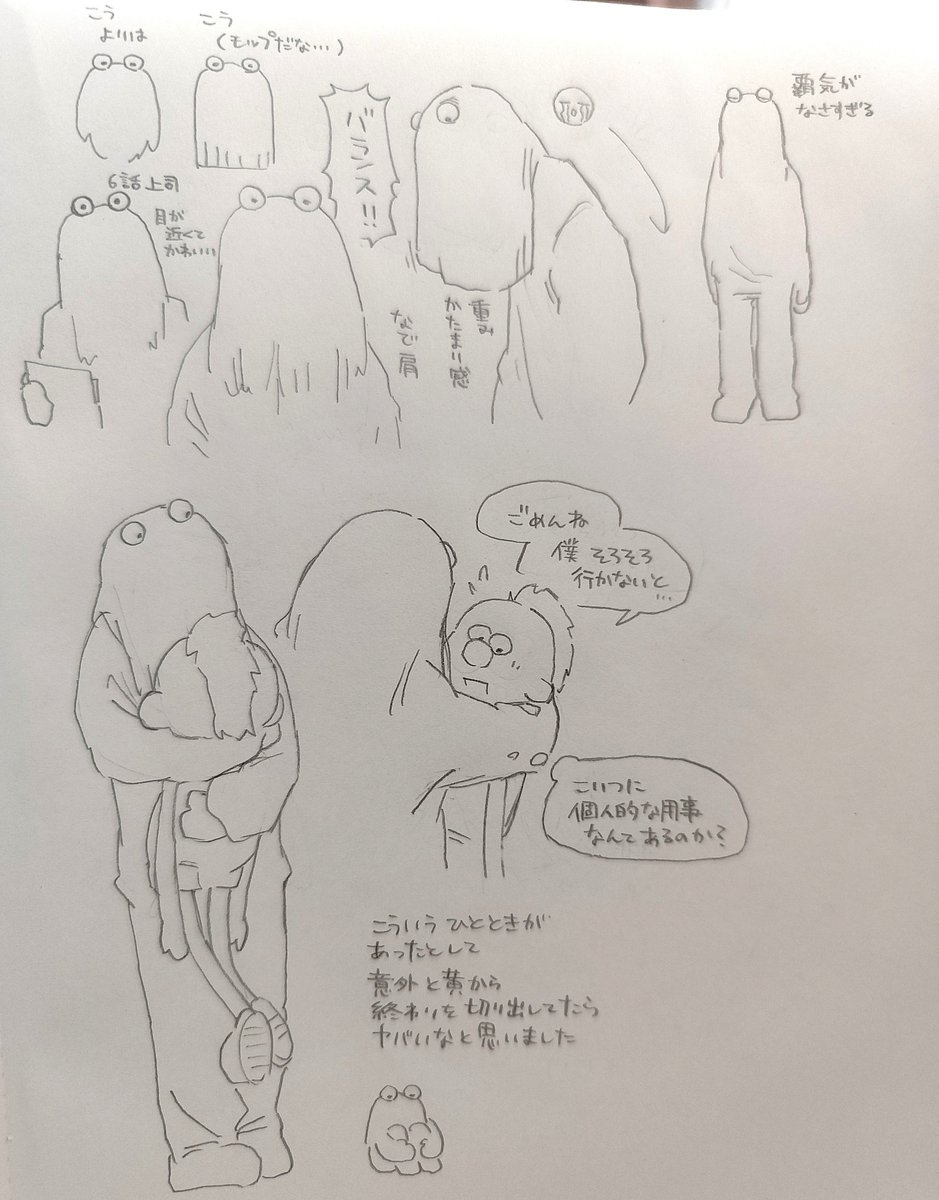 こう
よりは
こう
(モルプだな…)
バランス!!
覇気が
なさすぎる
6話上司
目が
近くて
かわいい
重み
かたまり感
なで肩
ごめんね
僕 そろそろ
行かないと
…
こいつに
個人的な用事
なんてあるのか?
こういう ひとときが
あったとして
意外と黄から
終わりを切り出してたら
ヤバいなと思いました